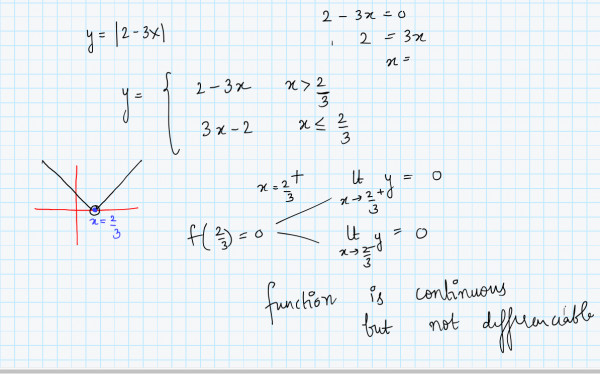 y = |2-3x|
2 - 3x = 0
2 = 3x
x =
y = { 2-3x x > 2/3
3x-2 x ≤ 2/3
x = 2/3
x = 2/3+
lt x→2/3+ y = 0
f(2/3) = 0
lt x→2/3- y = 0
function is continuous
but not differenciable